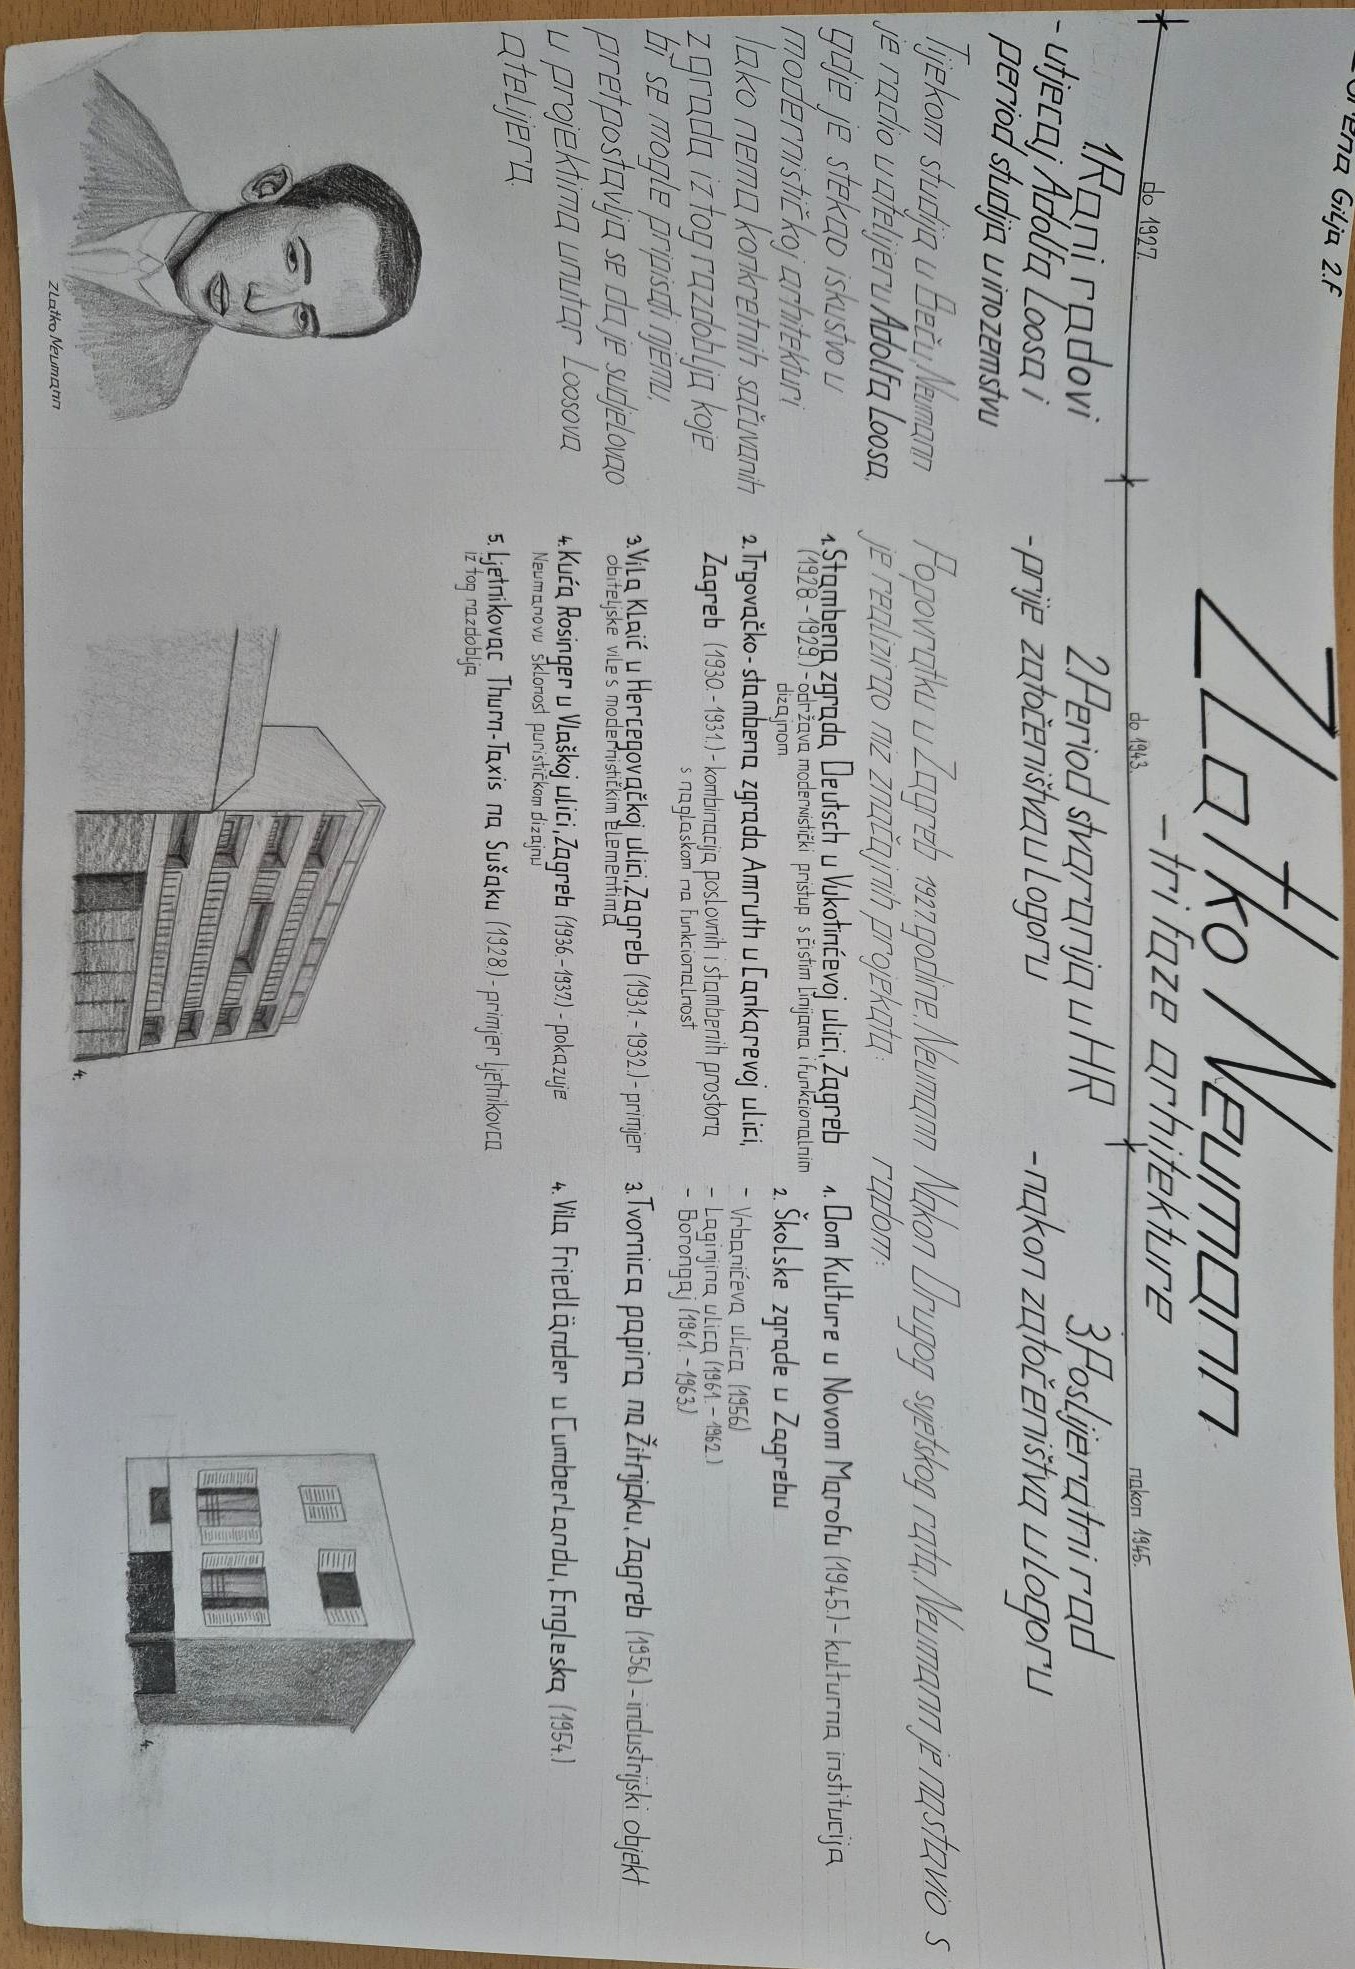 Gilja 2.f
Zlatko Neumann
- tri faze arhitekture
do 1927.
do 1943.
nakon 1945.
1.Rani radovi
- utjecaj Adolfa Loosa i
period studija u inozemstvu
Tijekom studija u Beču, Neumann
je radio u atelijeru Adolfa Loosa,
gdje je stekao iskustvo u
modernističkoj arhitekturi.
Iako nema konkretnih sačuvanih
zgrada iz tog razdoblja koje
bi se mogle pripisati njemu,
pretpostavlja se da je sudjelovao
u projektima unutar Loosova
atelijera.
Zlatko Neumann
2.Period stvaranja u HR
- prije zatočeništva u logoru
Po povratku u Zagreb 1927. godine, Neumann
je realizirao niz značajnih projekata:
1. Stambena zgrada Deutsch u Vukotinćevoj ulici, Zagreb
(1928.-1929.) - održava modernistički pristup s čistim linijama i funkcionalnim
dizajnom
2. Trgovačko-stambena zgrada Amruth u Cankarevoj ulici,
Zagreb (1930.-1931.) - kombinacija poslovnih i stambenih prostora
s naglaskom na funkcionalnost
3. Vila Klaić u Hercegovačkoj ulici, Zagreb (1931.-1932.) - primjer
obiteljske vile s modernističkim elementima
4. Kuća Rosinger u Vlaškoj ulici, Zagreb (1936.-1937.) - pokazuje
Neumanovu sklonost purističkom dizajnu
5. Ljetnikovac Thurn-Taxis na Sušaku (1928.) - primjer ljetnikovca
iz tog razdoblja
4.
3.Poslijeratni rad
- nakon zatočeništva u logoru
Nakon Drugog svjetskog rata, Neumann je nastavio s
radom:
1. Dom Kulture u Novom Marofu (1945.) - kulturna institucija
2. Školske zgrade u Zagrebu
- Vrbanićeva ulica (1956.)
- Laginjina ulica (1961.-1962.)
- Borongaj (1961.-1963.)
3. Tvornica papira na Žitnjaku, Zagreb (1956.) - industrijski objekt
4. Vila Friedländer u Cumberlandu, Engleska (1954.)
4.